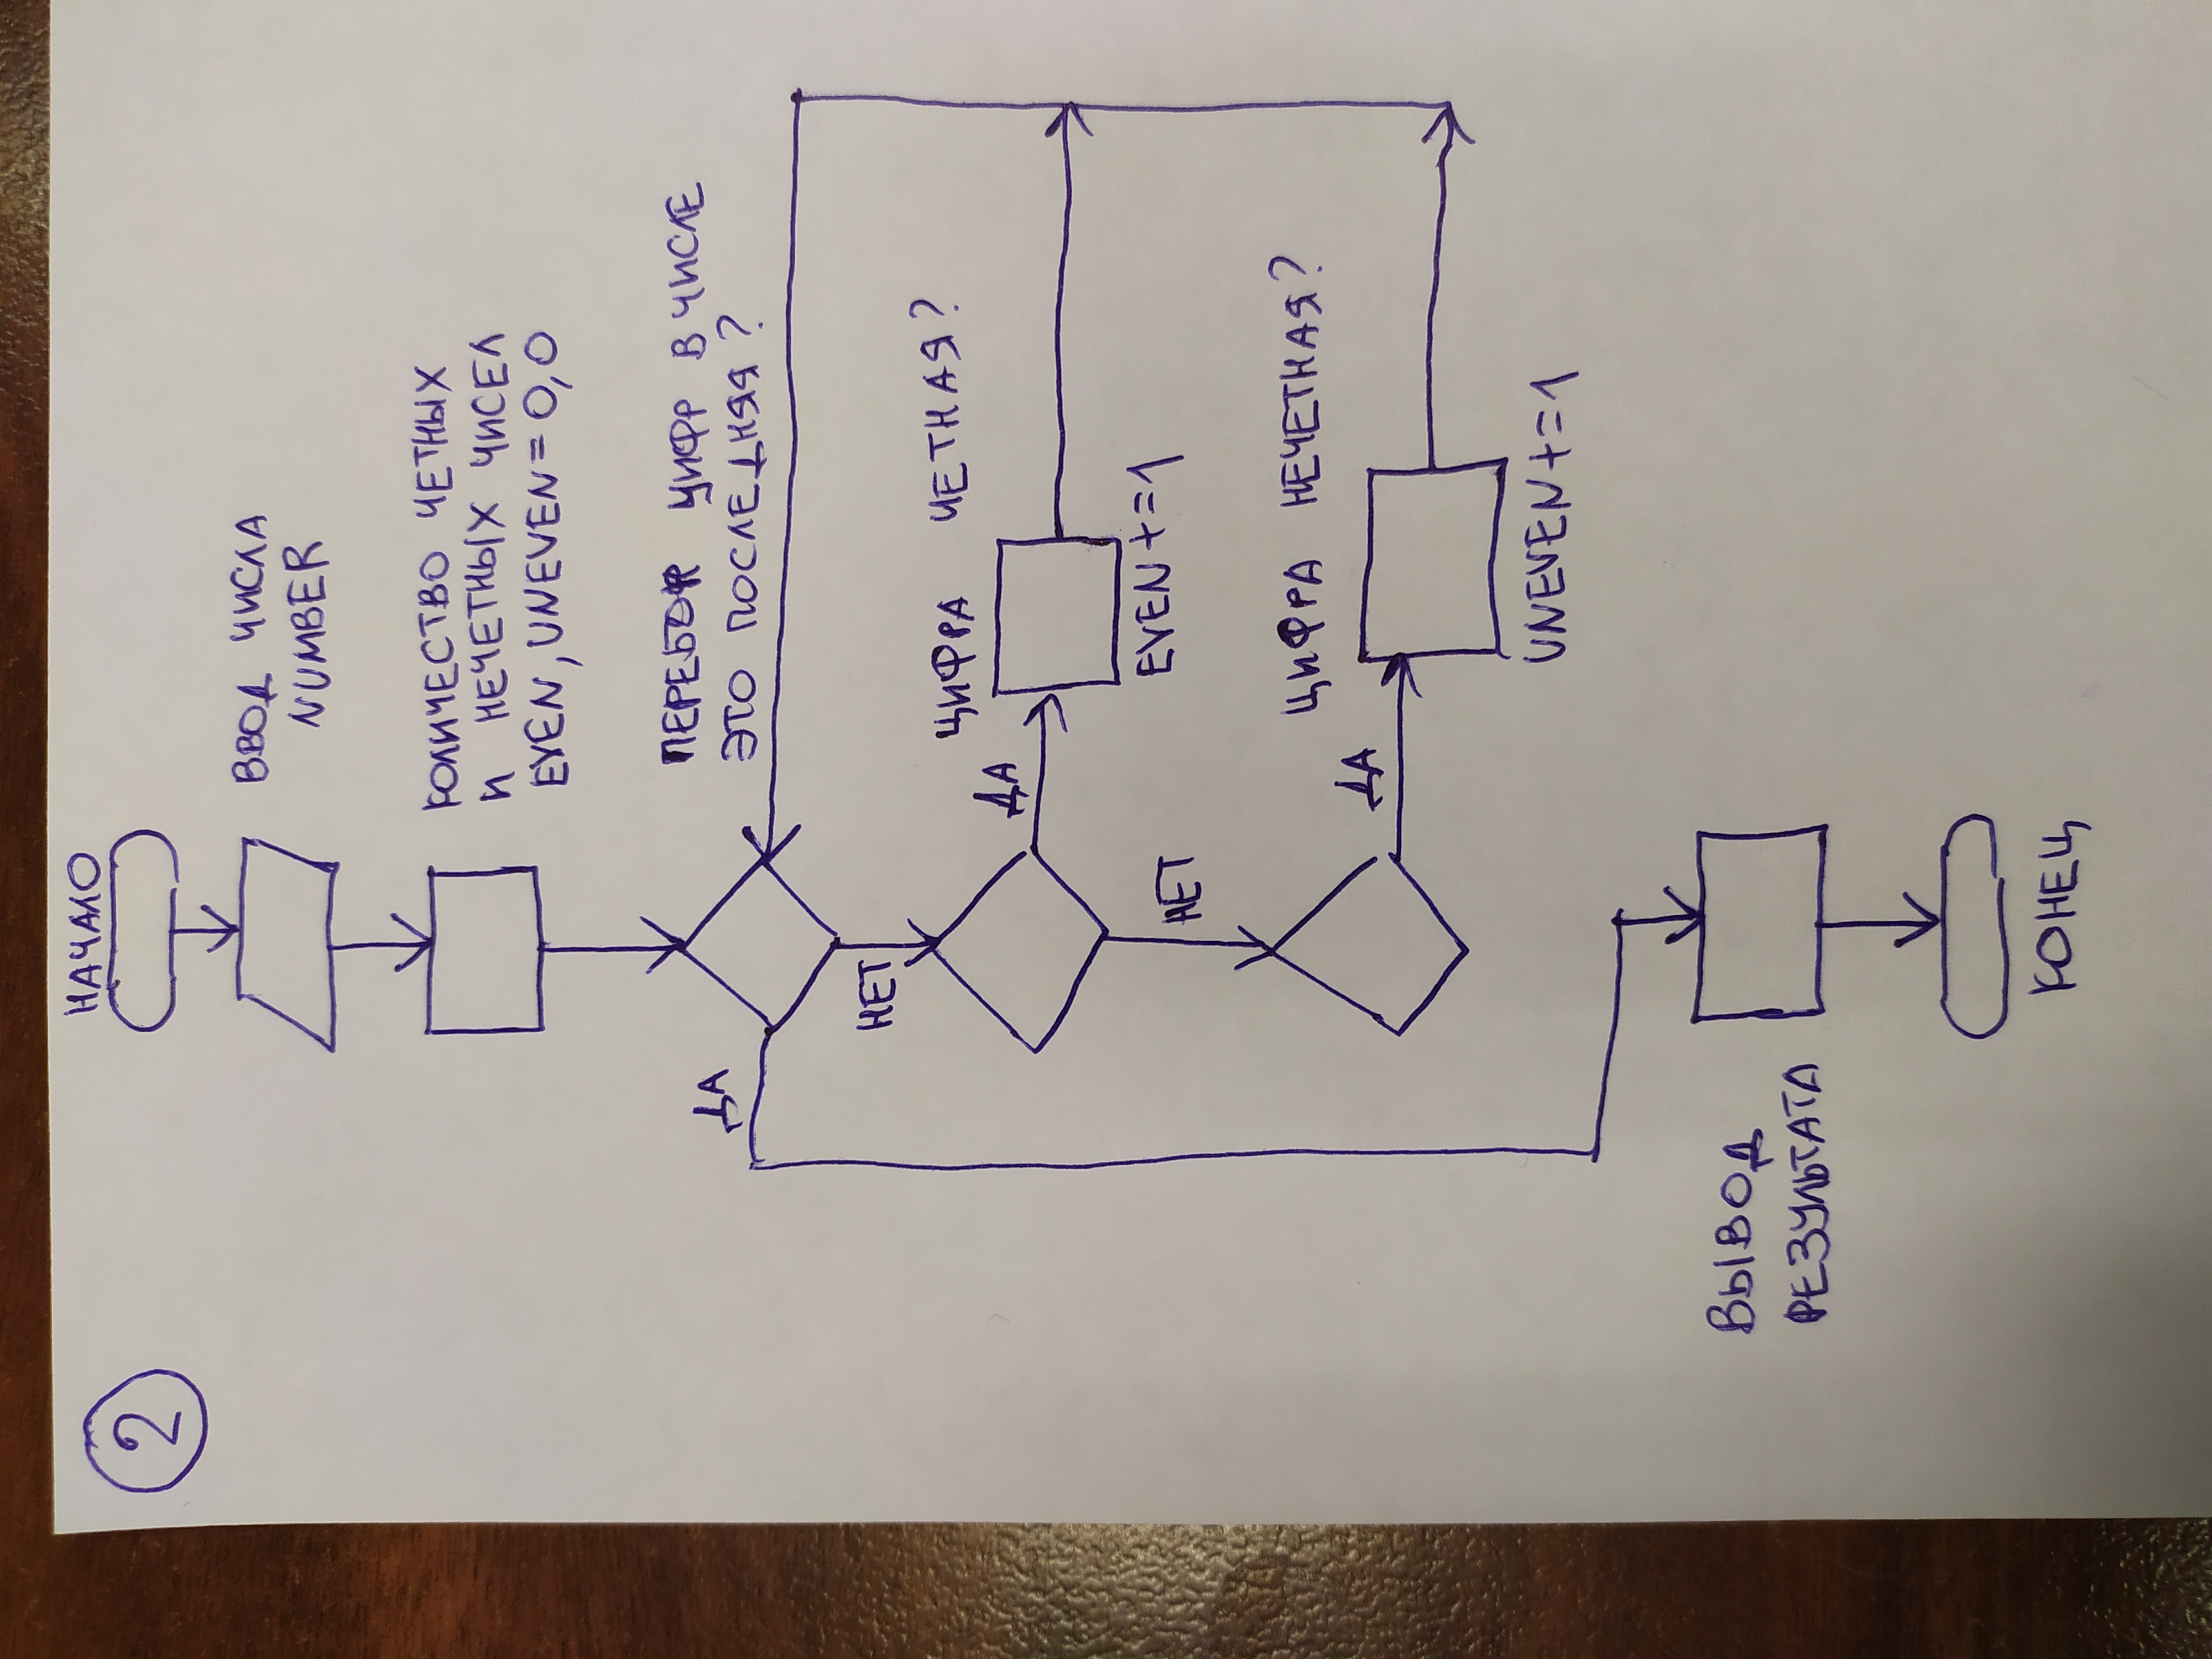 2
НАЧАЛО
ВВОД ЧИСЛА
NUMBER
КОЛИЧЕСТВО ЧЕТНЫХ
И НЕЧЕТНЫХ ЧИСЕЛ
EVEN, UNEVEN = 0,0
ПЕРЕБОР ЦИФР В ЧИСЛЕ
ЭТО ПОСЛЕДНЯЯ?
ДА
НЕТ
ЦИФРА ЧЕТНАЯ?
ДА
EVEN += 1
НЕТ
ЦИФРА НЕЧЕТНАЯ?
ДА
UNEVEN += 1
ВЫВОД
РЕЗУЛЬТАТА
КОНЕЦ